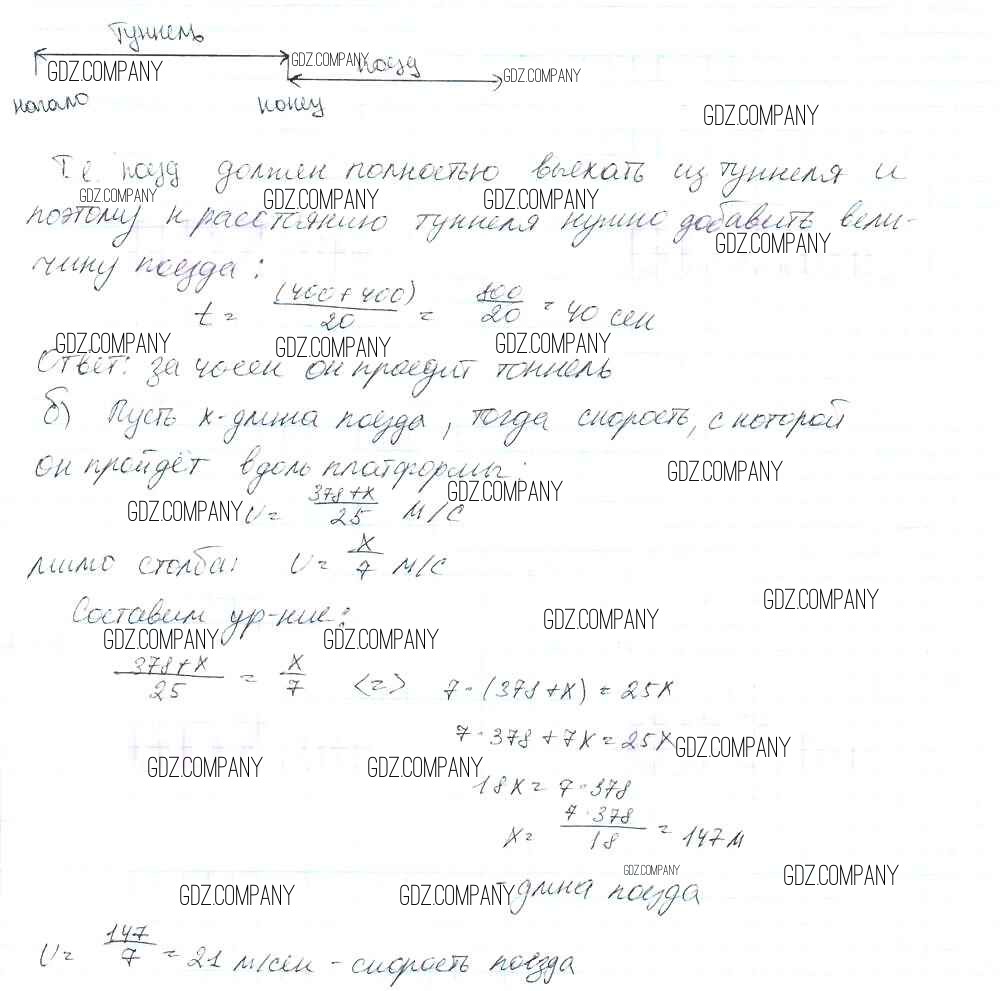 туннель
GDZ.COMPANY GDZ.COMPANY поезд GDZ.COMPANY
начало конец GDZ.COMPANY
Т.е. поезд должен полностью выехать из туннеля и
GDZ.COMPANY GDZ.COMPANY GDZ.COMPANY
поэтому к расстоянию туннеля нужно добавить вели-
GDZ.COMPANY
чину поезда:
t = (400+400)/20 = 800/20 = 40 сек
GDZ.COMPANY GDZ.COMPANY GDZ.COMPANY
Ответ: за 40 сек он проедит тоннель
б) Пусть x-длина поезда, тогда скорость, с которой
он пройдёт вдоль платформы:
GDZ.COMPANY
GDZ.COMPANY
GDZ.COMPANY
v = (378+x)/25 м/с
мимо столба: v = x/7 м/с
Составим ур-ние:
GDZ.COMPANY GDZ.COMPANY
GDZ.COMPANY GDZ.COMPANY
(378+x)/25 = x/7 <=> 7·(378+x) = 25x
7·378+7x=25x
GDZ.COMPANY
GDZ.COMPANY GDZ.COMPANY
18x = 7·378
x = (7·378)/18 = 147 м
GDZ.COMPANY GDZ.COMPANY
- длина поезда
GDZ.COMPANY GDZ.COMPANY
v = 147/7 = 21 м/сек - скорость поезда